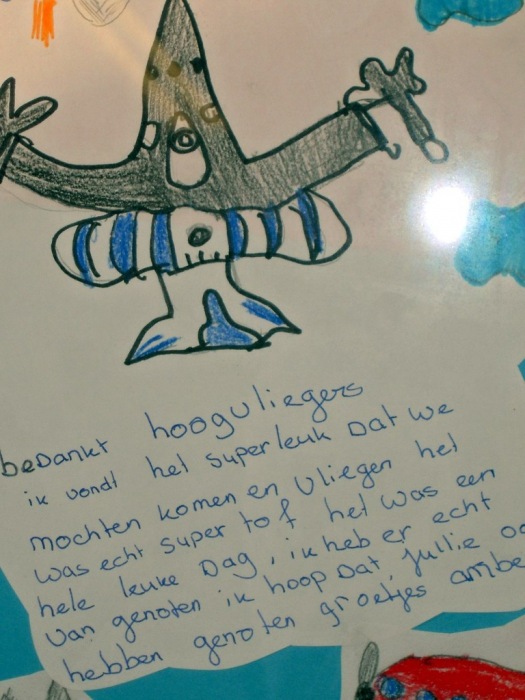 beDankt hooguliegers
ik vondt het superleuk Dat we
mochten komen en Vliegen het
was echt super tof het was een
hele leuke Dag, ik heb er echt
van genoten ik hoop Dat jullie oo
hebben genoten groetjes ambe